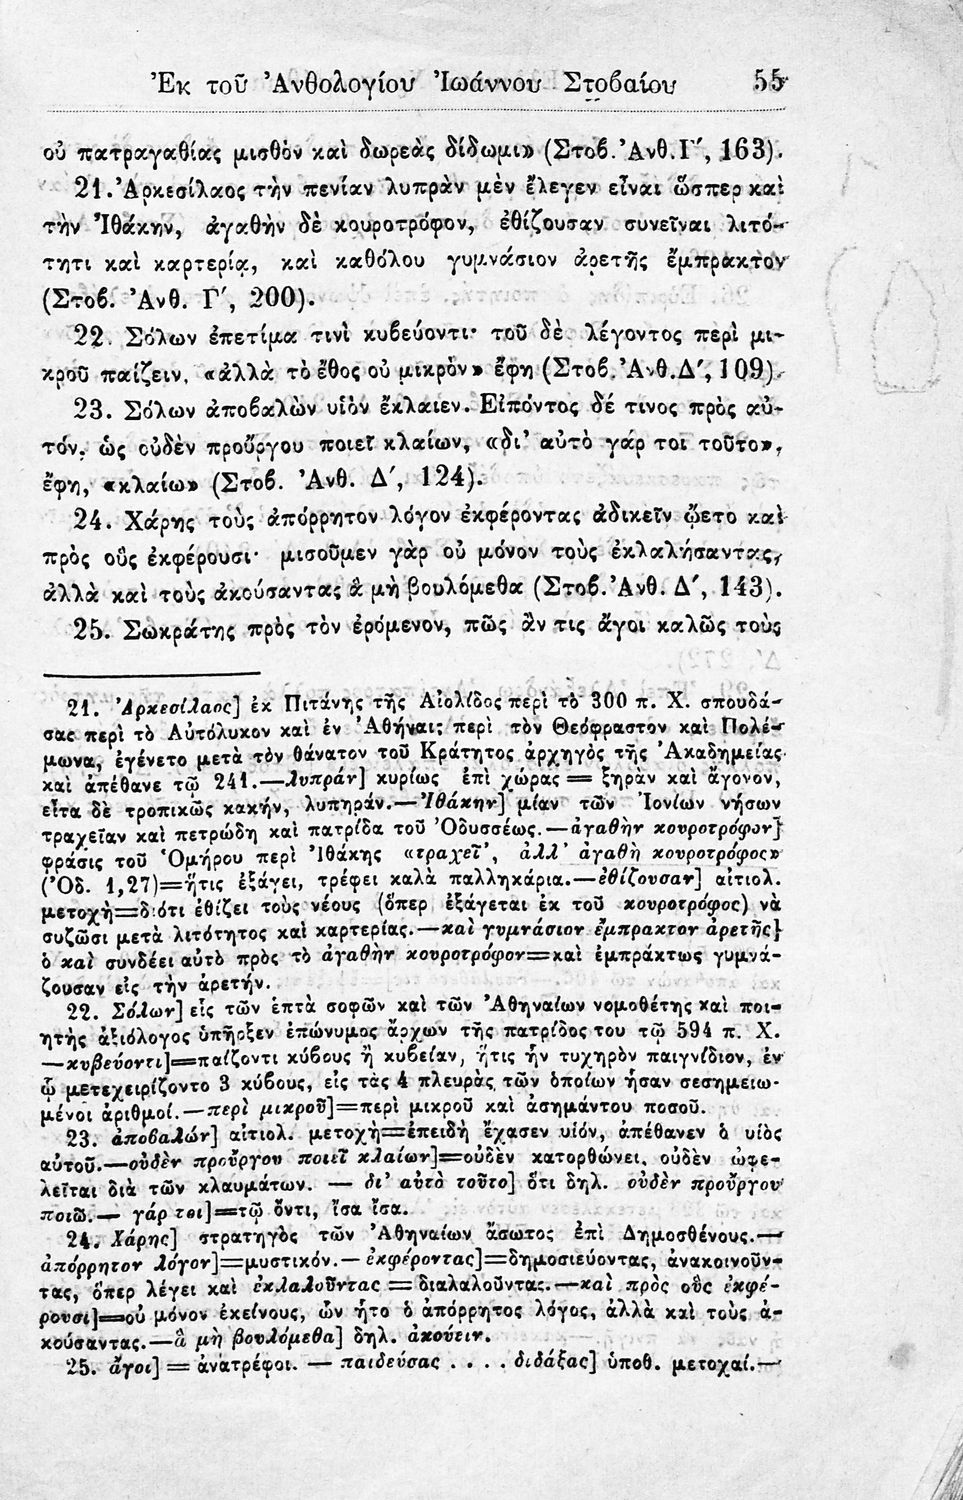 Ἐκ τοῦ Ἀνθολογίου Ἰωάννου Στοβαίου 55
οὐ πατραγαθίας μισθὸν καὶ δωρεὰς δίδωμι» (Στοβ. Ἀνθ. Γ΄, 163).
21. Ἀρκεσίλαος τὴν πενίαν λυπρὰν μὲν ἔλεγεν εἶναι ὥσπερ καὶ
τὴν Ἰθάκην, ἀγαθὴν δὲ κουροτρόφον, ἐθίζουσαν συνεῖναι λιτό-
τητι καὶ καρτερίᾳ, καὶ καθόλου γυμνάσιον ἀρετῆς ἔμπρακτον
(Στοβ. Ἀνθ. Γ΄, 200).
22. Σόλων ἐπετίμα τινὶ κυβεύοντι· τοῦ δὲ λέγοντος περὶ μι-
κροῦ παίζειν, «ἀλλὰ τὸ ἔθος οὐ μικρὸν» ἔφη (Στοβ. Ἀνθ. Δ΄, 109).
23. Σόλων ἀποβαλὼν υἱὸν ἔκλαιεν. Εἰπόντος δέ τινος πρὸς αὐ-
τόν, ὡς οὐδὲν προὔργου ποιεῖ κλαίων, «δι' αὐτὸ γάρ τοι τοῦτο»,
ἔφη, «κλαίω» (Στοβ. Ἀνθ. Δ΄, 124).
24. Χάρης τοὺς ἀπόρρητον λόγον ἐκφέροντας ἀδικεῖν ᾤετο καὶ
πρὸς οὓς ἐκφέρουσι· μισοῦμεν γὰρ οὐ μόνον τοὺς ἐκλαλήσαντας,
ἀλλὰ καὶ τοὺς ἀκούσαντας ἃ μὴ βουλόμεθα (Στοβ. Ἀνθ. Δ΄, 143).
25. Σωκράτης πρὸς τὸν ἐρόμενον, πῶς ἄν τις ἄγοι καλῶς τοὺς
21. Ἀρκεσίλαος] ἐκ Πιτάνης τῆς Αἰολίδος περὶ τὸ 300 π. Χ. σπουδά-
σας περὶ τὸ Αὐτόλυκον καὶ ἐν Ἀθήναις περὶ τὸν Θεόφραστον καὶ Πολέ-
μωνα, ἐγένετο μετὰ τὸν θάνατον τοῦ Κράτητος ἀρχηγὸς τῆς Ἀκαδημείας
καὶ ἀπέθανε τῷ 241.—λυπράν] κυρίως ἐπὶ χώρας = ξηρὰν καὶ ἄγονον,
εἶτα δὲ τροπικῶς κακήν, λυπηράν.—Ἰθάκην] μίαν τῶν Ἰονίων νήσων
τραχεῖαν καὶ πετρώδη καὶ πατρίδα τοῦ Ὀδυσσέως.—ἀγαθὴν κουροτρόφον]
φράσις τοῦ Ὁμήρου περὶ Ἰθάκης «τραχεῖ', ἀλλ' ἀγαθὴ κουροτρόφος»
(Ὀδ. 1,27)=ἥτις ἐξάγει, τρέφει καλὰ παλληκάρια.—ἐθίζουσαν] αἰτιολ.
μετοχὴ=διότι ἐθίζει τοὺς νέους (ὅπερ ἐξάγεται ἐκ τοῦ κουροτρόφος) νὰ
συζῶσι μετὰ λιτότητος καὶ καρτερίας.—καὶ γυμνάσιον ἔμπρακτον ἀρετῆς]
ὁ καὶ συνδέει αὐτὸ πρὸς τὸ ἀγαθὴν κουροτρόφον=καὶ ἐμπράκτως γυμνά-
ζουσαν εἰς τὴν ἀρετήν.
22. Σόλων] εἷς τῶν ἑπτὰ σοφῶν καὶ τῶν Ἀθηναίων νομοθέτης καὶ ποι-
ητὴς ἀξιόλογος ὑπῆρξεν ἐπώνυμος ἄρχων τῆς πατρίδος του τῷ 594 π. Χ.
—κυβεύοντι]=παίζοντι κύβους ἢ κυβείαν, ἥτις ἦν τυχηρὸν παιγνίδιον, ἐν
ᾧ μετεχειρίζοντο 3 κύβους, εἰς τὰς 4 πλευρὰς τῶν ὁποίων ἦσαν σεσημειω-
μένοι ἀριθμοί.—περὶ μικροῦ]=περὶ μικροῦ καὶ ἀσημάντου ποσοῦ.
23. ἀποβαλών] αἰτιολ. μετοχὴ=ἐπειδὴ ἔχασεν υἱόν, ἀπέθανεν ὁ υἱὸς
αὐτοῦ.—οὐδὲν προὔργου ποιεῖ κλαίων]=οὐδὲν κατορθώνει, οὐδὲν ὠφε-
λεῖται διὰ τῶν κλαυμάτων. — δι' αὐτὸ τοῦτο] ὅτι δηλ. οὐδὲν προὔργου
ποιῶ.— γάρ τοι]=τῷ ὄντι, ἴσα ἴσα.
24. Χάρης] στρατηγὸς τῶν Ἀθηναίων ἄσωτος ἐπὶ Δημοσθένους.—
ἀπόρρητον λόγον]=μυστικόν.— ἐκφέροντας]=δημοσιεύοντας, ἀνακοινοῦν-
τας, ὅπερ λέγει καὶ ἐκλαλοῦντας = διαλαλοῦντας.—καὶ πρὸς οὓς ἐκφέ-
ρουσι]=οὐ μόνον ἐκείνους, ὧν ἦτο ὁ ἀπόρρητος λόγος, ἀλλὰ καὶ τοὺς ἀ-
κούσαντας.—ἃ μὴ βουλόμεθα] δηλ. ἀκούειν.
25. ἄγοι] = ἀνατρέφοι. — παιδεύσας . . . . διδάξας] ὑποθ. μετοχαί.—